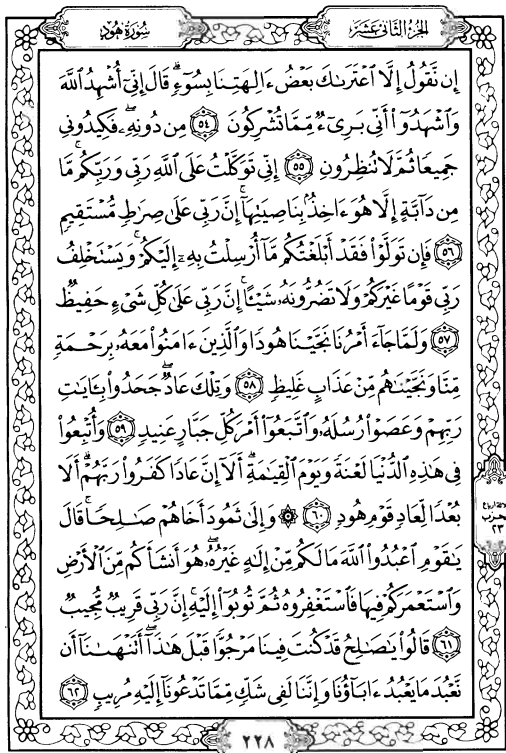 الجزء الثاني عشر
سورة هود
إِن نَّقُولُ إِلَّا ٱعْتَرَىٰكَ بَعْضُ ءَالِهَتِنَا بِسُوٓءٍۗ قَالَ إِنِّىٓ أُشْهِدُ ٱللَّهَ
وَٱشْهَدُوٓا۟ أَنِّى بَرِىٓءٌ مِّمَّا تُشْرِكُونَ ٥٤ مِن دُونِهِۦۖ فَكِيدُونِى
جَمِيعًا ثُمَّ لَا تُنظِرُونِ ٥٥ إِنِّى تَوَكَّلْتُ عَلَى ٱللَّهِ رَبِّى وَرَبِّكُمۚ مَّا
مِن دَآبَّةٍ إِلَّا هُوَ ءَاخِذٌۢ بِنَاصِيَتِهَآۚ إِنَّ رَبِّى عَلَىٰ صِرَٰطٍ مُّسْتَقِيمٍ
٥٦ فَإِن تَوَلَّوْا۟ فَقَدْ أَبْلَغْتُكُم مَّآ أُرْسِلْتُ بِهِۦٓ إِلَيْكُمْۚ وَيَسْتَخْلِفُ
رَبِّى قَوْمًا غَيْرَكُمْ وَلَا تَضُرُّونَهُۥ شَيْـًٔاۚ إِنَّ رَبِّى عَلَىٰ كُلِّ شَىْءٍ حَفِيظٌ
٥٧ وَلَمَّا جَآءَ أَمْرُنَا نَجَّيْنَا هُودًا وَٱلَّذِينَ ءَامَنُوا۟ مَعَهُۥ بِرَحْمَةٍ
مِّنَّا وَنَجَّيْنَٰهُم مِّنْ عَذَابٍ غَلِيظٍ ٥٨ وَتِلْكَ عَادٌۖ جَحَدُوا۟ بِـَٔايَٰتِ
رَبِّهِمْ وَعَصَوْا۟ رُسُلَهُۥ وَٱتَّبَعُوٓا۟ أَمْرَ كُلِّ جَبَّارٍ عَنِيدٍ ٥٩ وَأُتْبِعُوا۟
فِى هَٰذِهِ ٱلدُّنْيَا لَعْنَةً وَيَوْمَ ٱلْقِيَٰمَةِۗ أَلَآ إِنَّ عَادًا كَفَرُوا۟ رَبَّهُمْۗ أَلَا
بُعْدًا لِّعَادٍ قَوْمِ هُودٍ ٦٠ ۞ وَإِلَىٰ ثَمُودَ أَخَاهُمْ صَٰلِحًاۚ قَالَ
يَٰقَوْمِ ٱعْبُدُوا۟ ٱللَّهَ مَا لَكُم مِّنْ إِلَٰهٍ غَيْرُهُۥۖ هُوَ أَنشَأَكُم مِّنَ ٱلْأَرْضِ
وَٱسْتَعْمَرَكُمْ فِيهَا فَٱسْتَغْفِرُوهُ ثُمَّ تُوبُوٓا۟ إِلَيْهِۚ إِنَّ رَبِّى قَرِيبٌ مُّجِيبٌ
٦١ قَالُوا۟ يَٰصَٰلِحُ قَدْ كُنتَ فِينَا مَرْجُوًّا قَبْلَ هَٰذَآۖ أَتَنْهَىٰنَآ أَن
نَّعْبُدَ مَا يَعْبُدُ ءَابَآؤُنَا وَإِنَّنَا لَفِى شَكٍّ مِّمَّا تَدْعُونَآ إِلَيْهِ مُرِيبٍ ٦٢
حزب
٢٣
٢٢٨